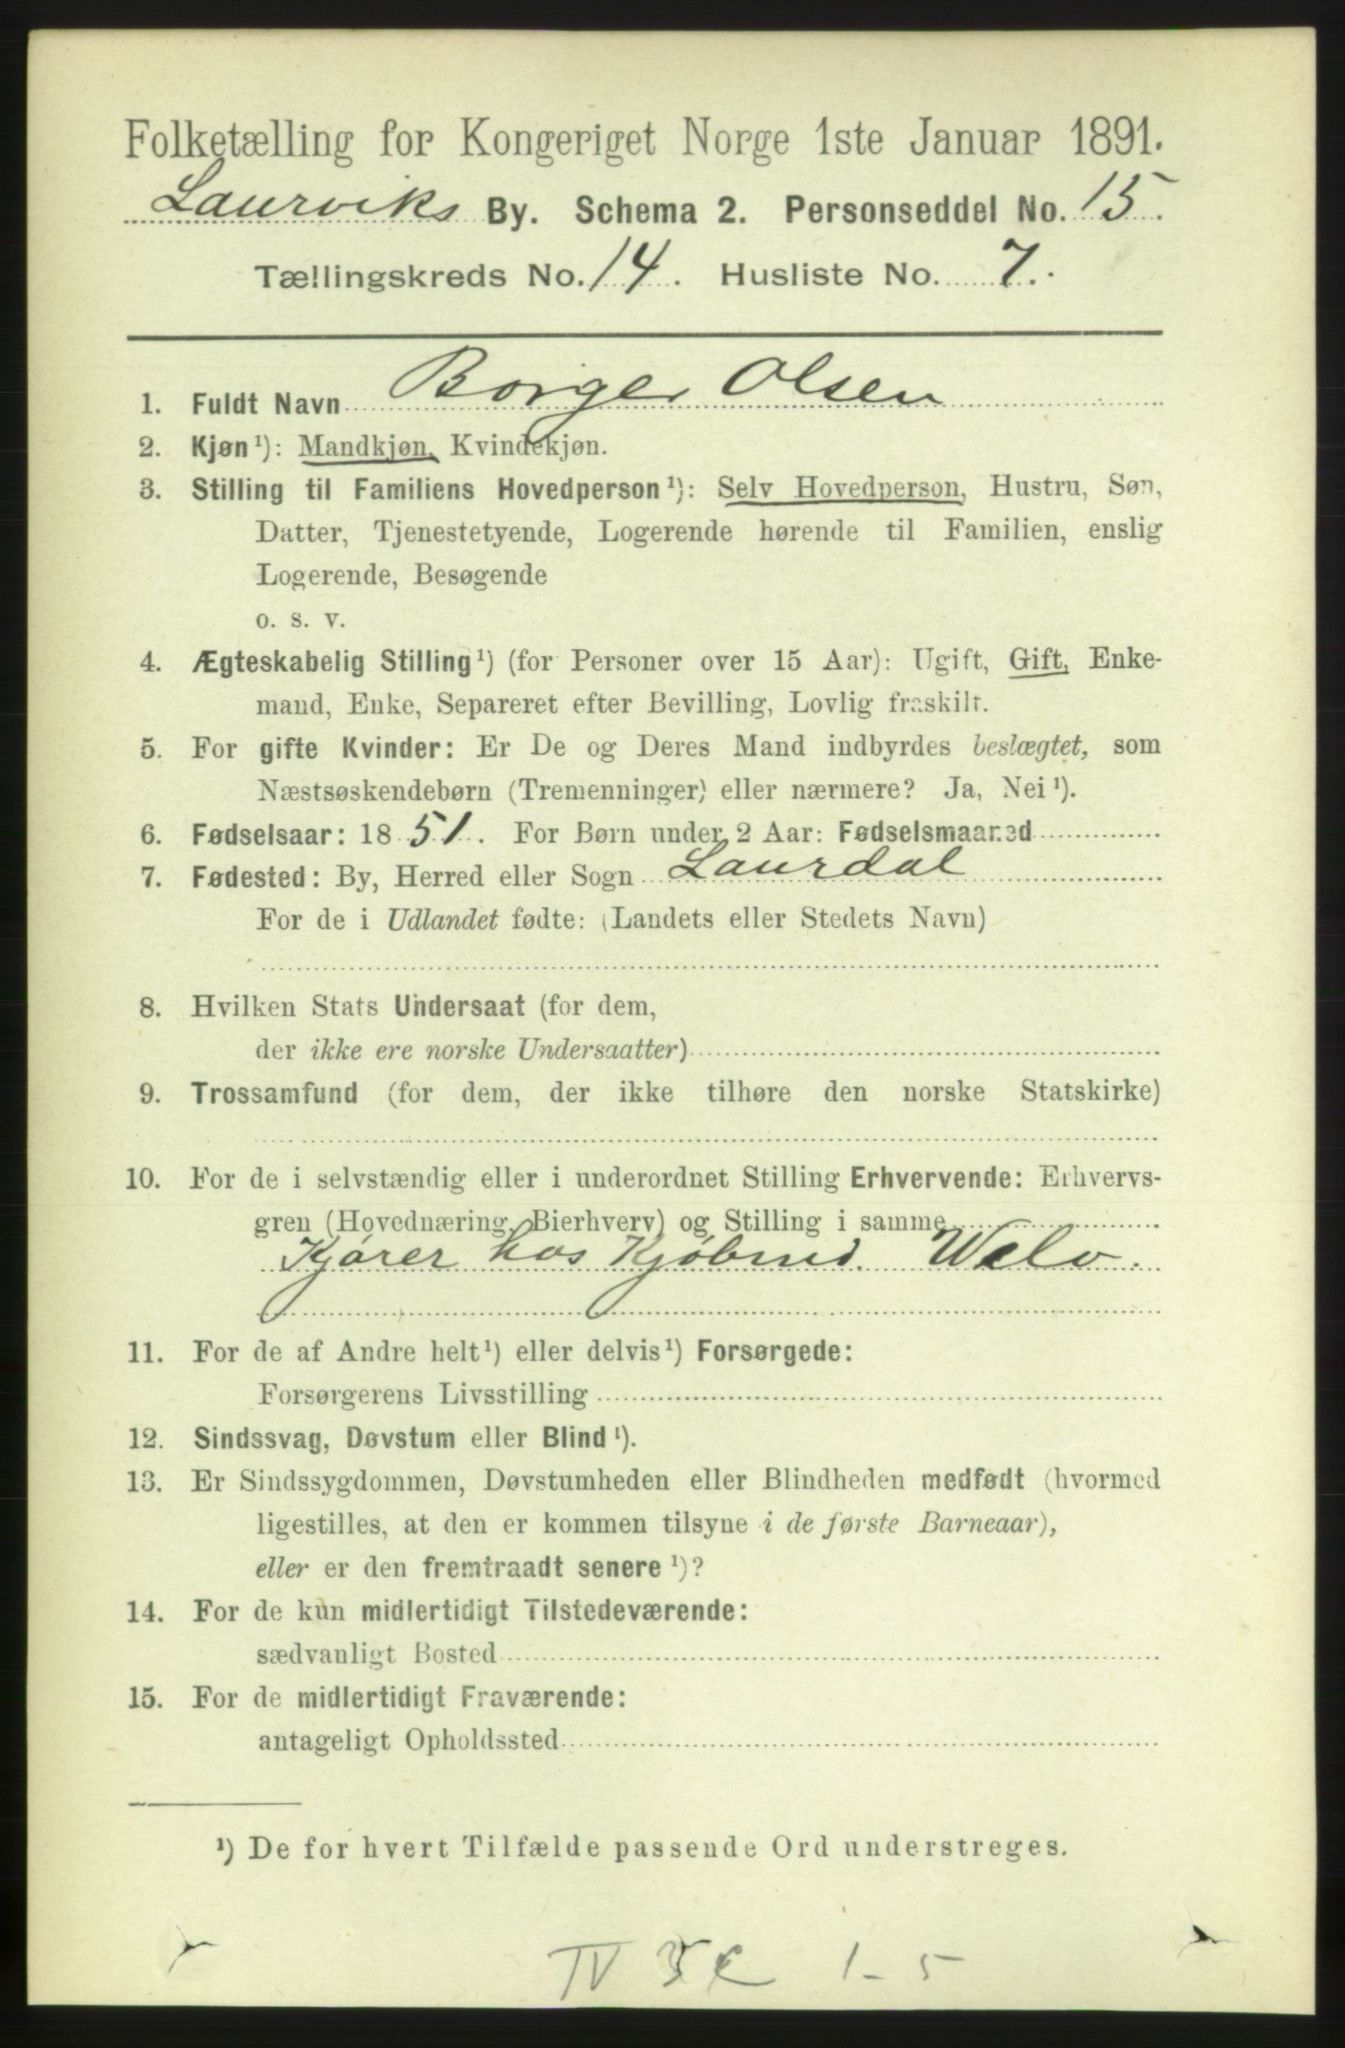 Folketælling for Kongeriget Norge 1ste Januar 1891.
Laurviks By. Schema 2. Personseddel No. 15.
Tællingskreds No. 14. Husliste No. 7.
1. Fuldt Navn Borger Olsen
2. Kjøn ¹): Mandkjøn, Kvindekjøn.
3. Stilling til Familiens Hovedperson ¹): Selv Hovedperson, Hustru, Søn,
Datter, Tjenestetyende, Logerende hørende til Familien, enslig
Logerende, Besøgende
o. s. v.
4. Ægteskabelig Stilling ¹) (for Personer over 15 Aar): Ugift, Gift, Enke-
mand, Enke, Separeret efter Bevilling, Lovlig fraskilt.
5. For gifte Kvinder: Er De og Deres Mand indbyrdes beslægtet, som
Næstsøskendebørn (Tremenninger) eller nærmere? Ja, Nei ¹).
6. Fødselsaar: 1851. For Børn under 2 Aar: Fødselsmaaned
7. Fødested: By, Herred eller Sogn Laurdal
For de i Udlandet fødte: (Landets eller Stedets Navn)
8. Hvilken Stats Undersaat (for dem,
der ikke ere norske Undersaatter)
9. Trossamfund (for dem, der ikke tilhøre den norske Statskirke)
10. For de i selvstændig eller i underordnet Stilling Erhvervende: Erhvervs-
gren (Hovednæring, Bierhverv) og Stilling i samme
Kjører hos Kjøbmd. Welo.
11. For de af Andre helt ¹) eller delvis ¹) Forsørgede:
Forsørgerens Livsstilling
12. Sindssvag, Døvstum eller Blind ¹).
13. Er Sindssygdommen, Døvstumheden eller Blindheden medfødt (hvormed
ligestilles, at den er kommen tilsyne i de første Barneaar),
eller er den fremtraadt senere ¹)?
14. For de kun midlertidigt Tilstedeværende:
sædvanligt Bosted
15. For de midlertidigt Fraværende:
antageligt Opholdssted
¹) De for hvert Tilfælde passende Ord understreges.
IV 1-5